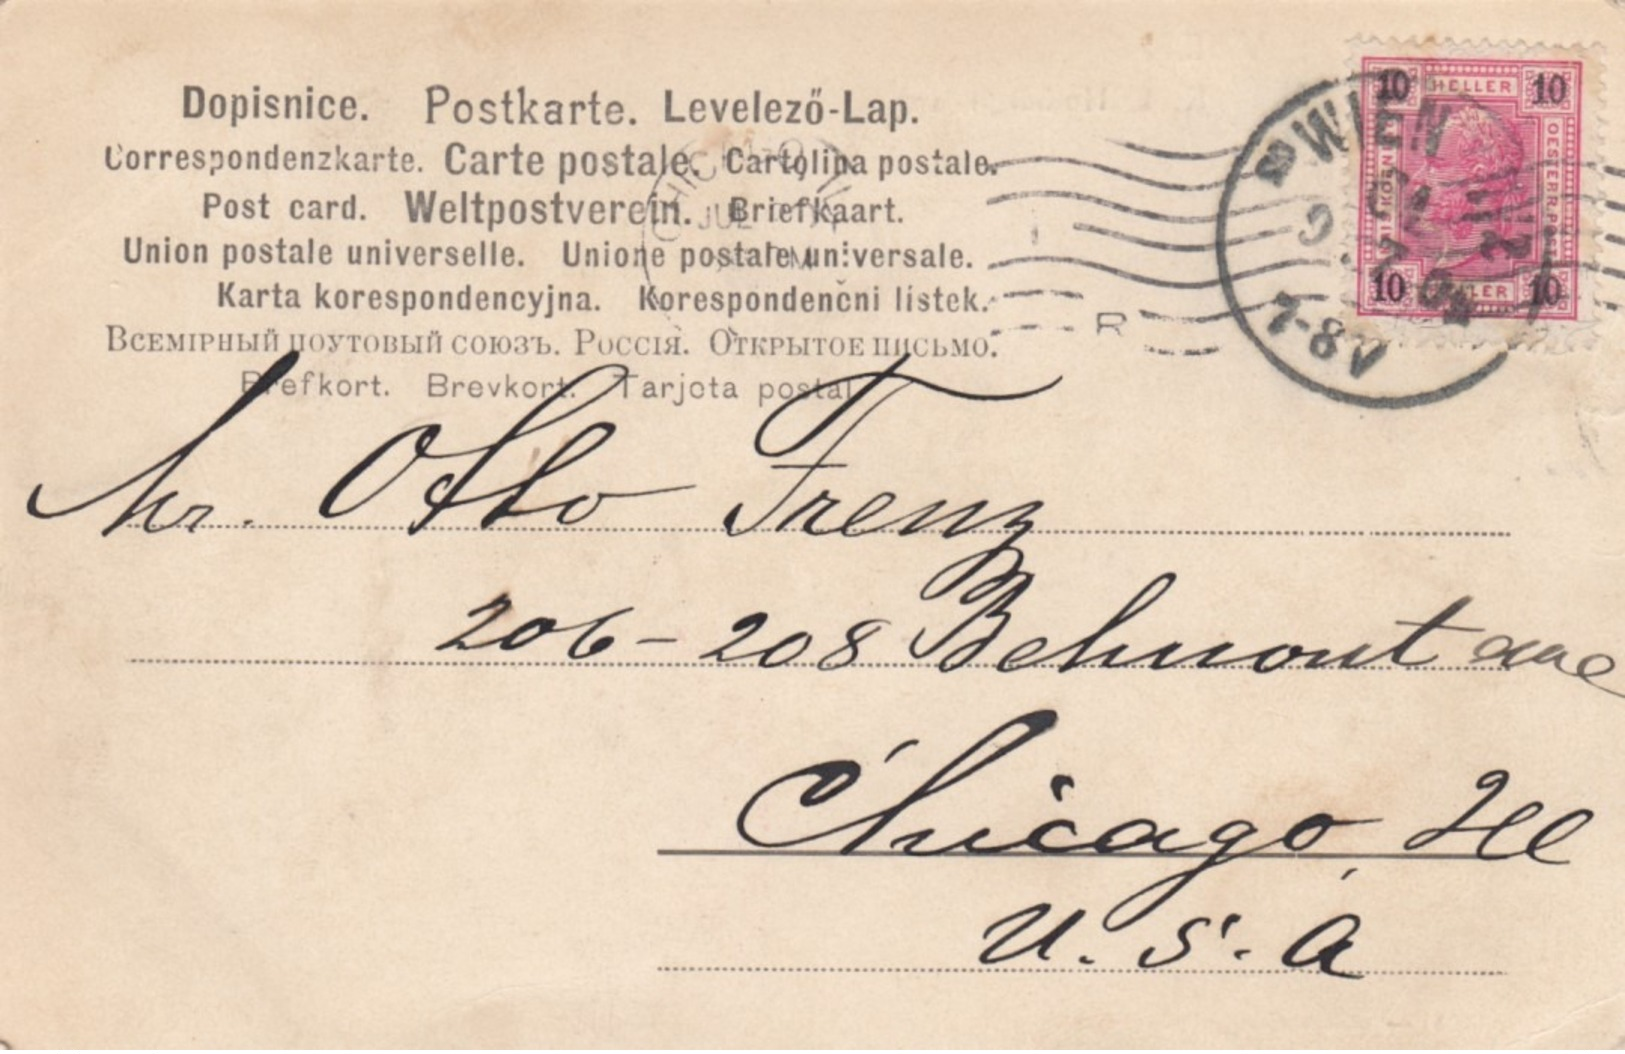 Dopisnice. Postkarte. Levelező-Lap.
Correspondenzkarte. Carte postale. Cartolina postale.
Post card. Weltpostverein. Briefkaart.
Union postale universelle. Unione postale universale.
Karta korespondencyjna. Korespondenčni listek.
Всемірный поутовый союзъ. Россія. Открытое письмо.
Brefkort. Brevkort. Tarjeta postal
10 HELLER 10
WIEN
7-8V
10 10
CHICAGO
JUL
PM
R
Mr. Otto Frenz
206-208 Belmont ave
Chicago, Ill
U.S.A